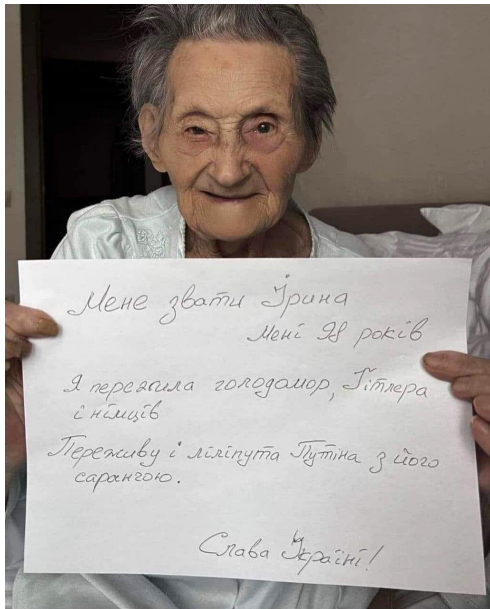 Мене звати Ірина
Мені 98 років
Я пережила голодомор, Гітлера
і німців
Переживу і ліліпута Путіна з його
саранчою.
Слава Україні!